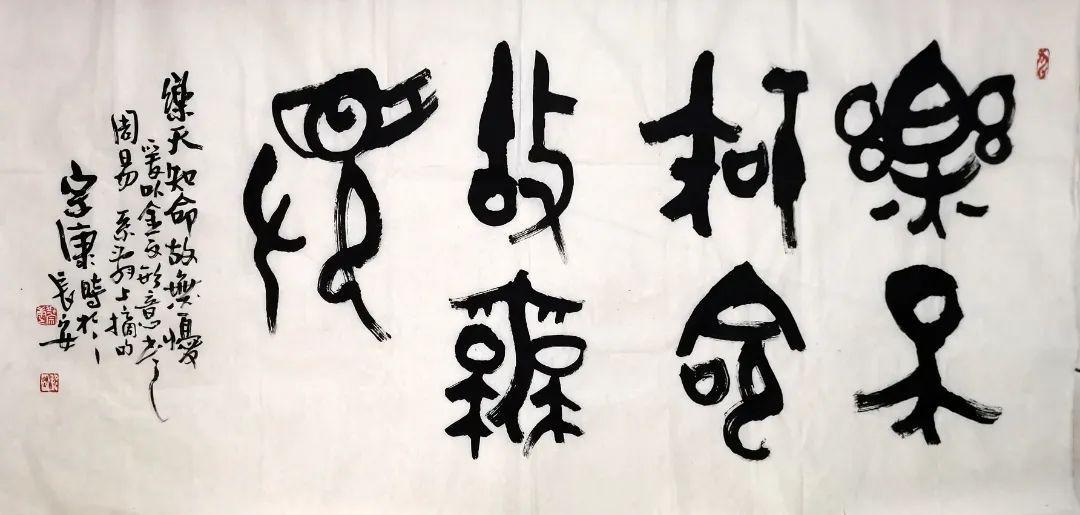 樂天
知命
故無
憂
樂天知命故無憂
爰以金文形意書之
周易系辭上摘句
宗康時於
長安